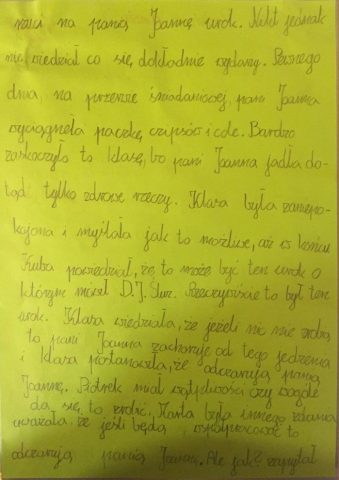 na panią Joannę urok. Nikt jednak
nie wiedział co się dokładnie wydarzy. Pewnego
dnia, na przerwie śniadaniowej, pani Joanna
wyciągnęła paczkę czipsów i cole. Bardzo
zaskoczyło to klasę, bo pani Joanna jadła do-
tąd tylko zdrowe rzeczy. Klasa była zaniepo-
kojona i myślała jak to możliwe, aż w końcu
Kuba powiedział, że to może być ten urok o
którym mówił D.J. Slur. Rzeczywiście to był ten
urok. Klasa wiedziała, że jeżeli nic nie zrobią
to pani Joanna zachoruje od tego jedzenia
i klasa postanowiła, że odczarują panią
Joannę. Piotrek miał wątpliwości czy wogóle
da się to zrobić, Karla była innego zdania
uważała, że jeśli będą współpracować to
odczarują panią Joannę. Ale jak? zapytał